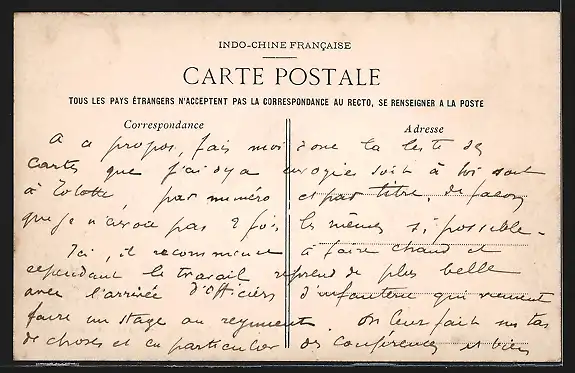 INDO-CHINE FRANÇAISE
CARTE POSTALE
TOUS LES PAYS ÉTRANGERS N'ACCEPTENT PAS LA CORRESPONDANCE AU RECTO, SE RENSEIGNER A LA POSTE
Correspondance
Adresse
A ce propos, fais moi donc la liste des
cartes que j'ai déjà envoyées soit à toi soit
à , par numéro et par titre, de façon
que je n'envoie pas 2 fois les mêmes si possible.
Ici, il recommence à faire chaud et
cependant le travail reprend de plus belle
avec l'arrivée d'officiers d'infanterie qui viennent
faire un stage au régiment. On leur fait un tas
de choses et en particulier des conférences et bien